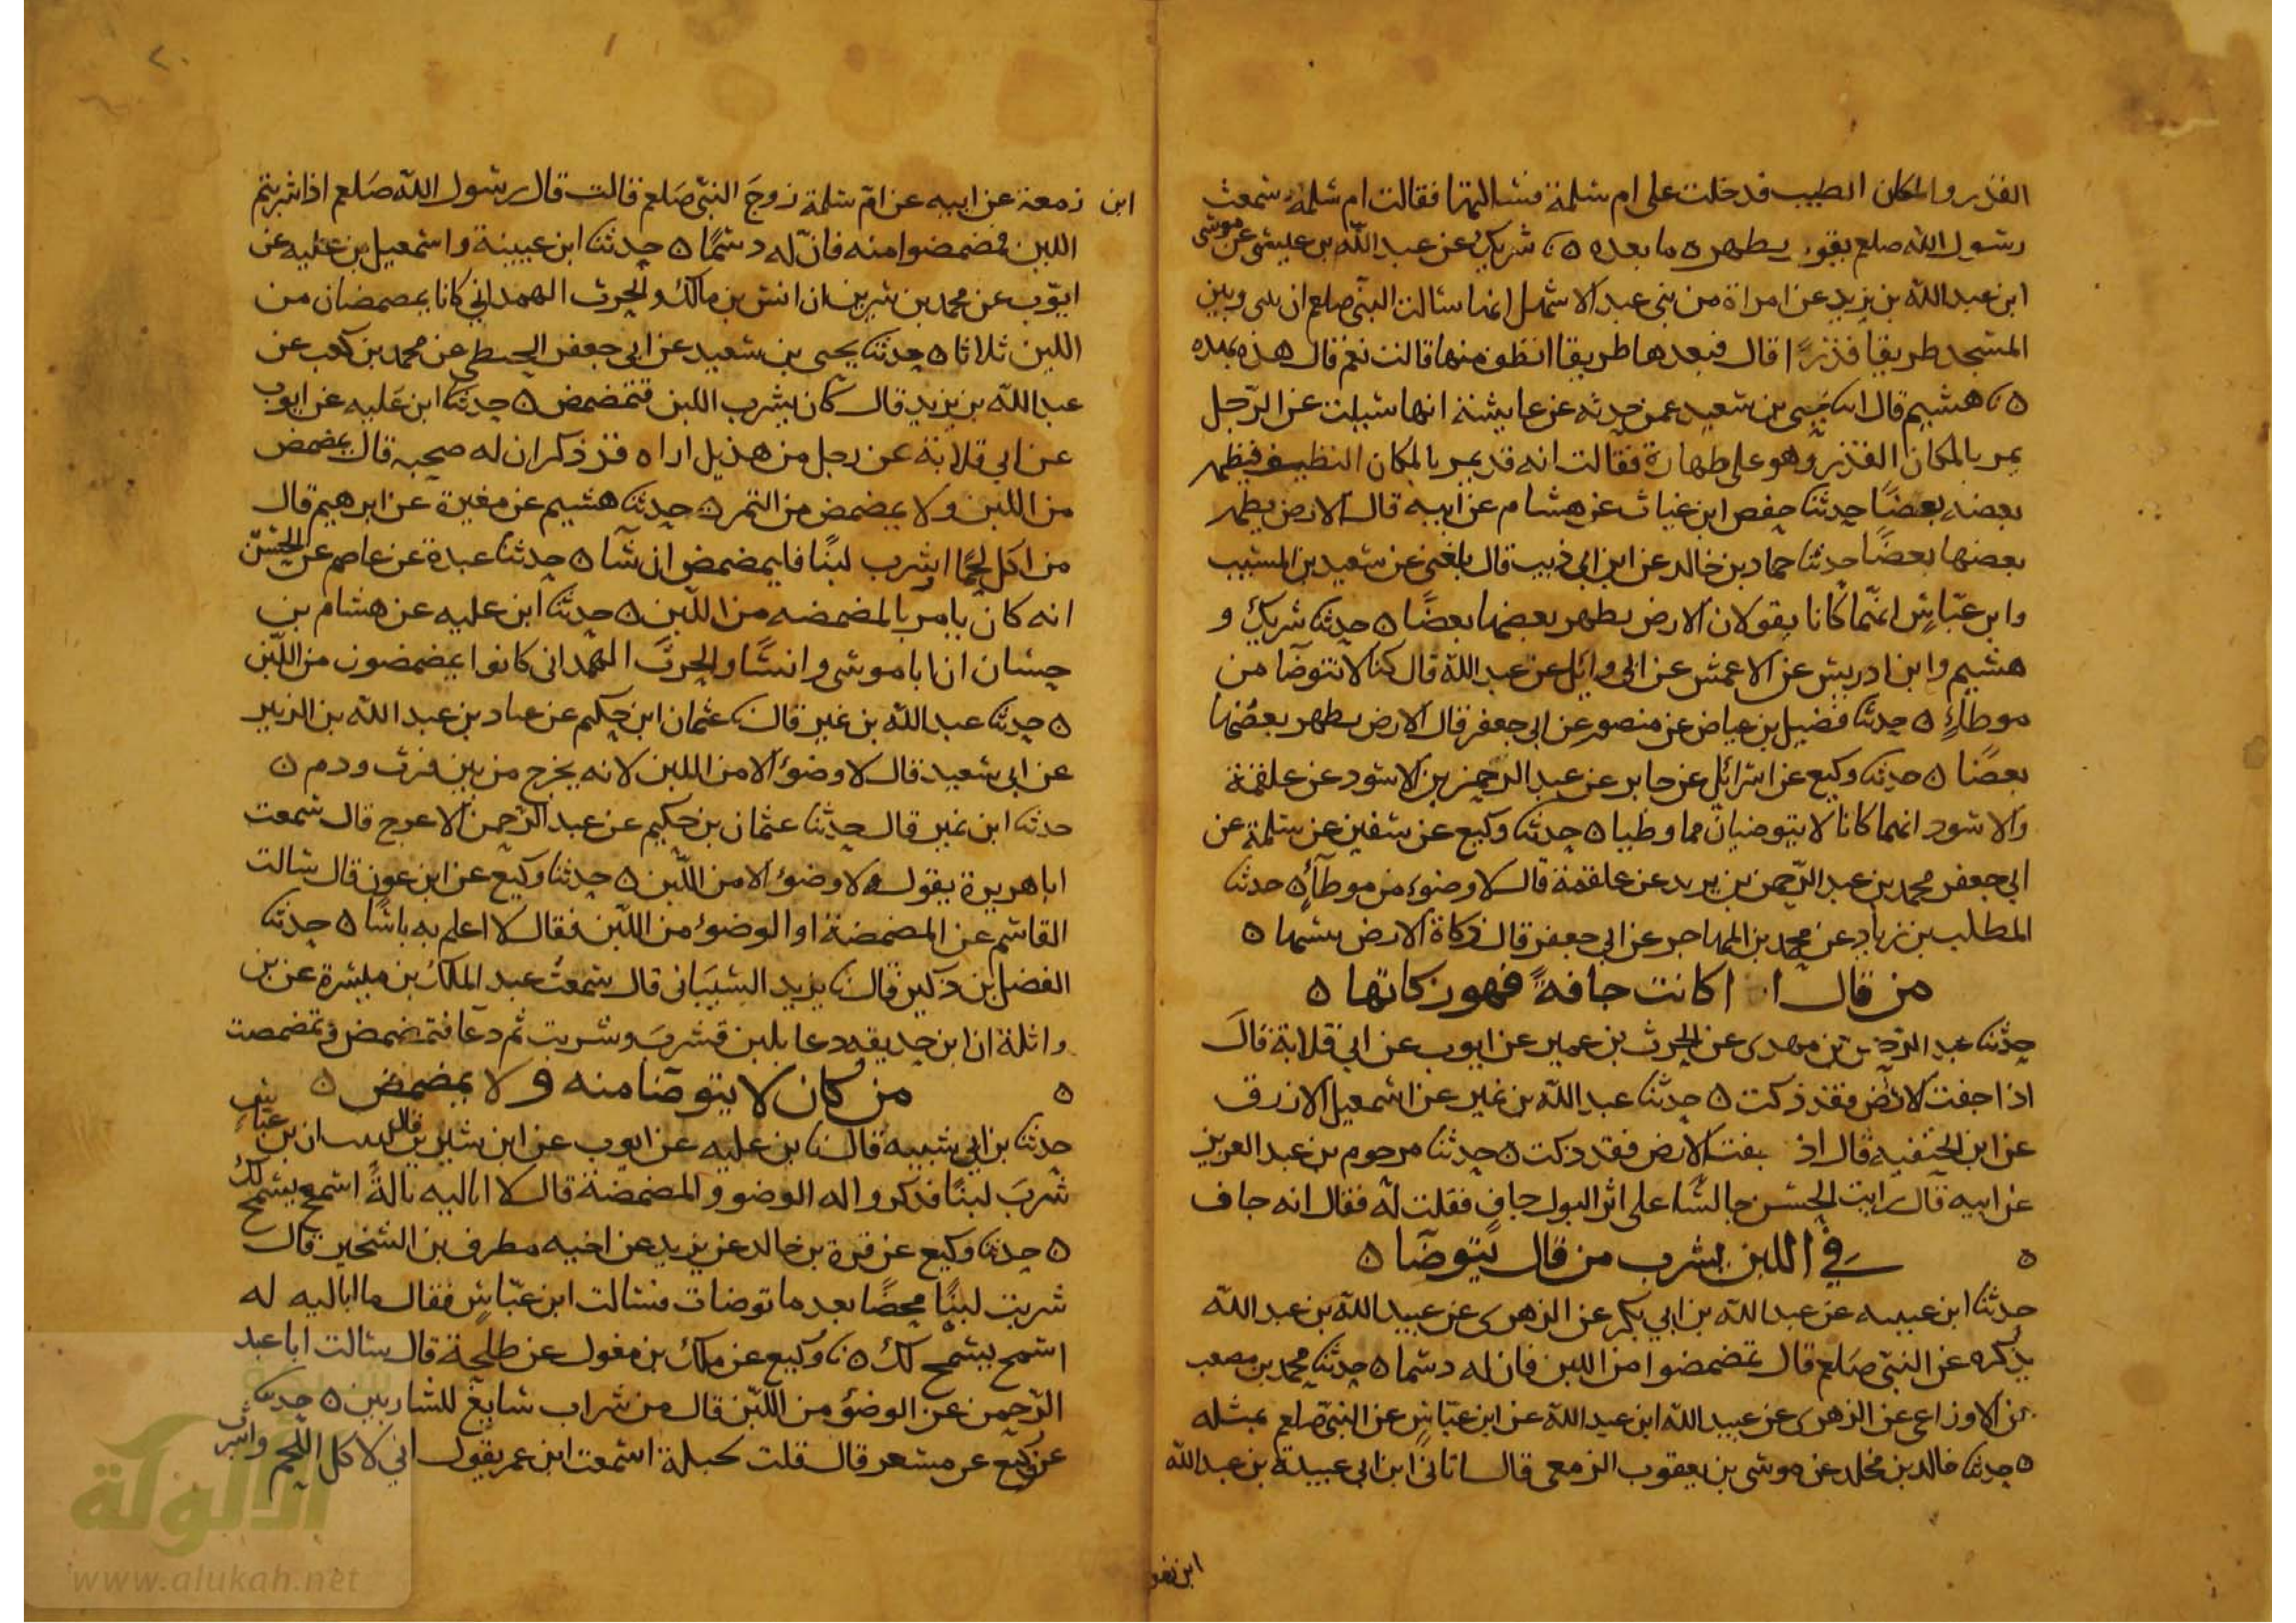 القذر والمكان الطيب فدخلت على ام سلمة فسالتها فقالت ام سلمة سمعت
رسول الله صلعم يقول يطهره ما بعده ٥ نا شريك عن عبد الله بن عيسى عن موسى
ابن عبد الله بن يزيد عن امراة من بني عبد الاشهل انها سالت النبي صلعم ان بيني وبين
المسجد طريقا قذرًا قال فبعدها طريقا انظف منها قالت نعم قال هذه بهذه
٥ نا هشيم قال انا يحيى بن سعيد عمن حدثه عن عايشة انها سيلت عن الرجل
يمر بالمكان القذر وهو على طهارة فقالت انه قد يمر بالمكان النظيف فيطهر
بعضه بعضًا حدثنا حفص ابن غياث عن هشام عن ابيه قال الارض يطهر
بعضها بعضًا حدثنا حماد بن خالد عن ابن ابي ذيب قال بلغني عن سعيد بن المسيب
وابن عبّاسٍ انهما كانا يقولان الارض يطهر بعضها بعضًا ٥ حدثنا شريك و
هشيم وابن ادريس عن الاعمش عن ابي وايل عن عبد الله قال كنا لا نتوضا من
موطاءٍ ٥ حدثنا فضيل بن عياض عن منصور عن ابي جعفر قال الارض يطهر بعضها
بعضًا ٥ حدثنا وكيع عن اسرائل عن جابر عن عبد الرحمن بن الاسود عن علقمة
والاسود انهما كانا لا يتوضيان مما وطيا ٥ حدثنا وكيع عن سفين عن سلمة عن
ابي جعفر محمد بن عبد الرحمن بن يزيد عن علقمة قال لا وضوء من موطاءٍ ٥ حدثنا
المطلب بن زياد عن محمد بن المهاجر عن ابي جعفر قال زكاة الارض يبسها ٥
من قال اذا كانت جافةً فهو زكاتها ٥
حدثنا عبد الرحمن بن مهدى عن الحرث بن عمير عن ايوب عن ابي قلابة قال
اذا جفت الارض فقد ذكت ٥ حدثنا عبد الله بن نمير عن اسمعيل الازرق
عن ابن الحنفيه قال اذا جفت الارض فقد ذكت ٥ حدثنا مرحوم بن عبد العزيز
عن ابيه قال رايت الحسن جالسًا على اثر البول جافٍ فقلت له فقال انه جاف
٥ في اللبن يشرب من قال يتوضا ٥
حدثنا ابن عيينه عن عبد الله بن ابي بكر عن الزهرى عن عبيد الله بن عبد الله
يذكره عن النبي صلعم قال تمضمضوا من اللبن فان له دسما ٥ حدثنا محمد بن مصعب
عن الاوزاعي عن الزهرى عن عبيد الله ابن عبد الله عن ابن عبّاسٍ عن النبي صلعم بمثله
٥ حدثنا خالد بن مخلد عن موسى بن يعقوب الزمعى قال انا ابن ابي عبيدة بن عبد الله
ابن زمعة
ابن زمعة عن ابيه عن ام سلمة زوجَ النبي صَلعم قالت قال رسول الله صَلعم اذا شربتم
اللبن فمضمضوا منه فانّ له دسمًا ٥ حدثنا ابن عيينة واسمعيل بن عليه عن
ايوب عن محمد بن سيرين ان انس بن مالك والحرث الهمداني كانا يمضمضان من
اللبن ثلاثا ٥ حدثنا يحيى بن سعيد عن ابي جعفر الخطمى عن محمد بن كعب عن
عبد الله بن يزيد قال كان يشرب اللبن فتمضمض ٥ حدثنا ابن عَليه عن ايوب
عن ابي قلابة عن رجل من هذيل اراه قد ذكر ان له صحبه قال يمضمض
من اللبن ولا يمضمض من التمر ٥ حدثنا هشيم عن مغيرة عن ابرهيم قال
من اكل لحمًا او شرب لبنًا فليمضمض ان شآ ٥ حدثنا عبدة عن عاصم عن الحسن
انه كان يامر بالمضمضه من اللبن ٥ حدثنا ابن عليه عن هشام بن
حسان ان ابا موسى وانسًا والحرثَ الهمدانى كانوا يمضمضون من اللبن
٥ حدثنا عبد الله بن نمير قال نا عثمان ابن حكيم عن عباد بن عبد الله بن الزبير
عن ابي سعيد قال لا وضوء الا من اللبن لانه يخرج من بين فرث ودم ٥
حدثنا ابن نمير قال حدثنا عثمان بن حكيم عن عبد الرحمن الاعرج قال سمعت
اباهريرة يقول لا وضوء الا من اللبن ٥ حدثنا وكيع عن ابن عون قال سالت
القاسم عن المضمضة او الوضوء من اللبن فقال لا اعلم به باسًا ٥ حدثنا
الفضل بن دكين قال نا يزيد الشيبانى قال سمعت عبد الملك بن ميسرة عن بن
واثلة ان ابن حذيفه دعا بلبن فشرب وشربت ثم دعا فتمضمض وتمضمضت
٥ من كان لا يتوضا منه ولا يمضمض ٥
حدثنا بن ابي شيبه قال نا بن عليه عن ايوب عن ابن سيرين قال ان بن عبّاسٍ
شربَ لبنًا فذكروا له الوضو والمضمضة قال لا اباليه بالةً اسمح يسمح لك
٥ حدثنا وكيع عن قرة بن خالد عن يزيد عن اخيه مطرف بن الشخير قال
شربت لبنًا محضًا بعد ما توضات فسالت ابن عبّاسٍ فقال ما اباليه له
اسمح يسمح لك ٥ نا وكيع عن ملك بن مغول عن طلحة قال سالت ابا عبد
الرحمن عن الوضو من اللبن قال من شراب سايغ للشاربين ٥ حدثنا
وكيع عن مسعر قال قلت لجبلة اسمعت ابن عمر يقول اني لاكل اللحم واشرب
الألوكة
www.alukah.net